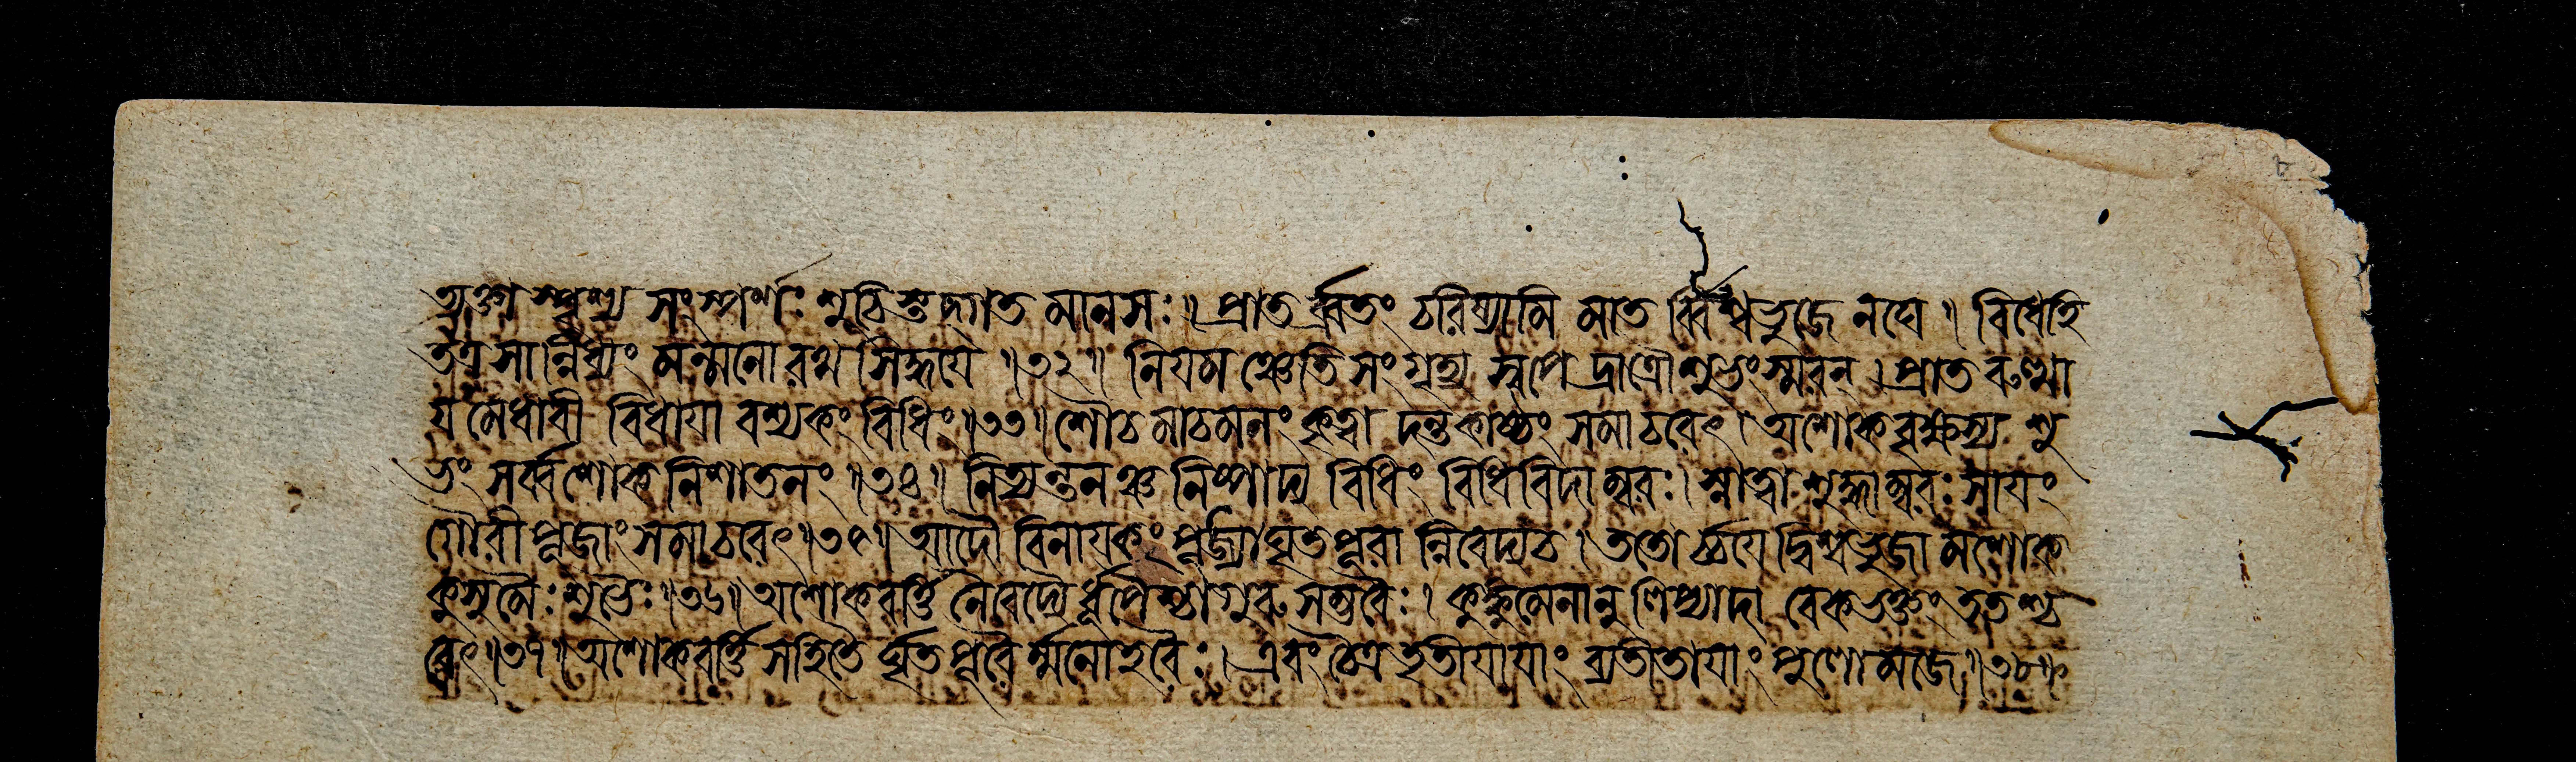 ত্যক্তাস্পৃশ্য সংস্পর্শঃ শুচিস্তদ্গত মানসঃ । প্রাত র্ব্রতং চরিষ্যামি মাত র্ব্বিশ্বভুজে নঘে । বিধেহি
তত্র সান্নিধ্যং মন্মনোরথ সিদ্ধয়ে ॥৩২॥ নিয়মঞ্চেতি সংগৃহ্য স্বপে দ্রাত্রৌ শুভং স্মরন্ । প্রাত রুত্থা
য় মেধাবী বিধায়া বশ্যকং বিধিং ॥৩৩॥ শৌচ মাচমনং কৃত্বা দন্তকাষ্ঠং সমাচরেৎ । অশোকবৃক্ষস্য শু
ভং সর্ব্বশোক নিশাতনং ॥৩৪॥ নিত্যন্তনঞ্চ নিষ্পাদ্য বিধিং বিধিবিদাম্বরঃ । স্নাত্বা শুদ্ধাম্বরঃ সায়ং
গৌরী পূজাং সমাচরেৎ ॥৩৫॥ আদৌ বিনায়কং পূজ্য ঘৃতপূরা ন্নিবেদ্য চ । ততোর্চ্চয়ে দ্বিশ্বভুজা মশোক
কুসুমৈঃ শুভৈঃ ॥৩৬॥ অশোকবর্ত্তি নৈবেদ্যৈ র্ধূপৈশ্চাগুরু সম্ভবৈঃ । কুঙ্কুমেনানুলিপ্যাদা বেকভক্তং ততশ্চ
রেৎ ॥৩৭॥ অশোকবর্ত্তি সহিতৈ র্ঘৃতপূরৈ র্ম্মনোহরৈঃ । এবং চৈত্র তৃতীয়ায়াং ব্যতীতায়াং পুলোমজে ॥৩৮॥